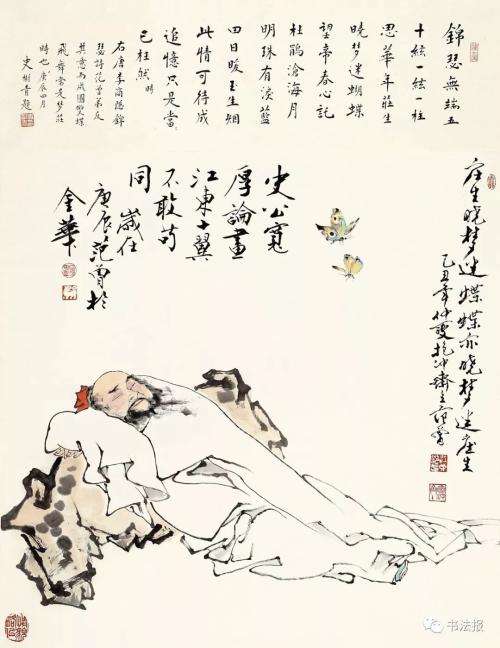 錦瑟無端五
十絃一絃一柱
思華年莊生
曉夢迷蝴蝶
望帝春心託
杜鵑滄海月
明珠有淚藍
田日暖玉生烟
此情可待成
追憶只是當時
已枉然
右唐李商隱錦
瑟詩范曾弟反
其意而成圖雙蝶
飛舞當是夢莊
時也庚辰四月
史樹青題
庄生曉梦迷蝶蝶亦曉梦迷庄生
乙丑年仲夏抱冲斋主范曾
史公寬
厚論畫
江東十翼
不敢苟
同歲在
庚辰范曾於
金華
书法报